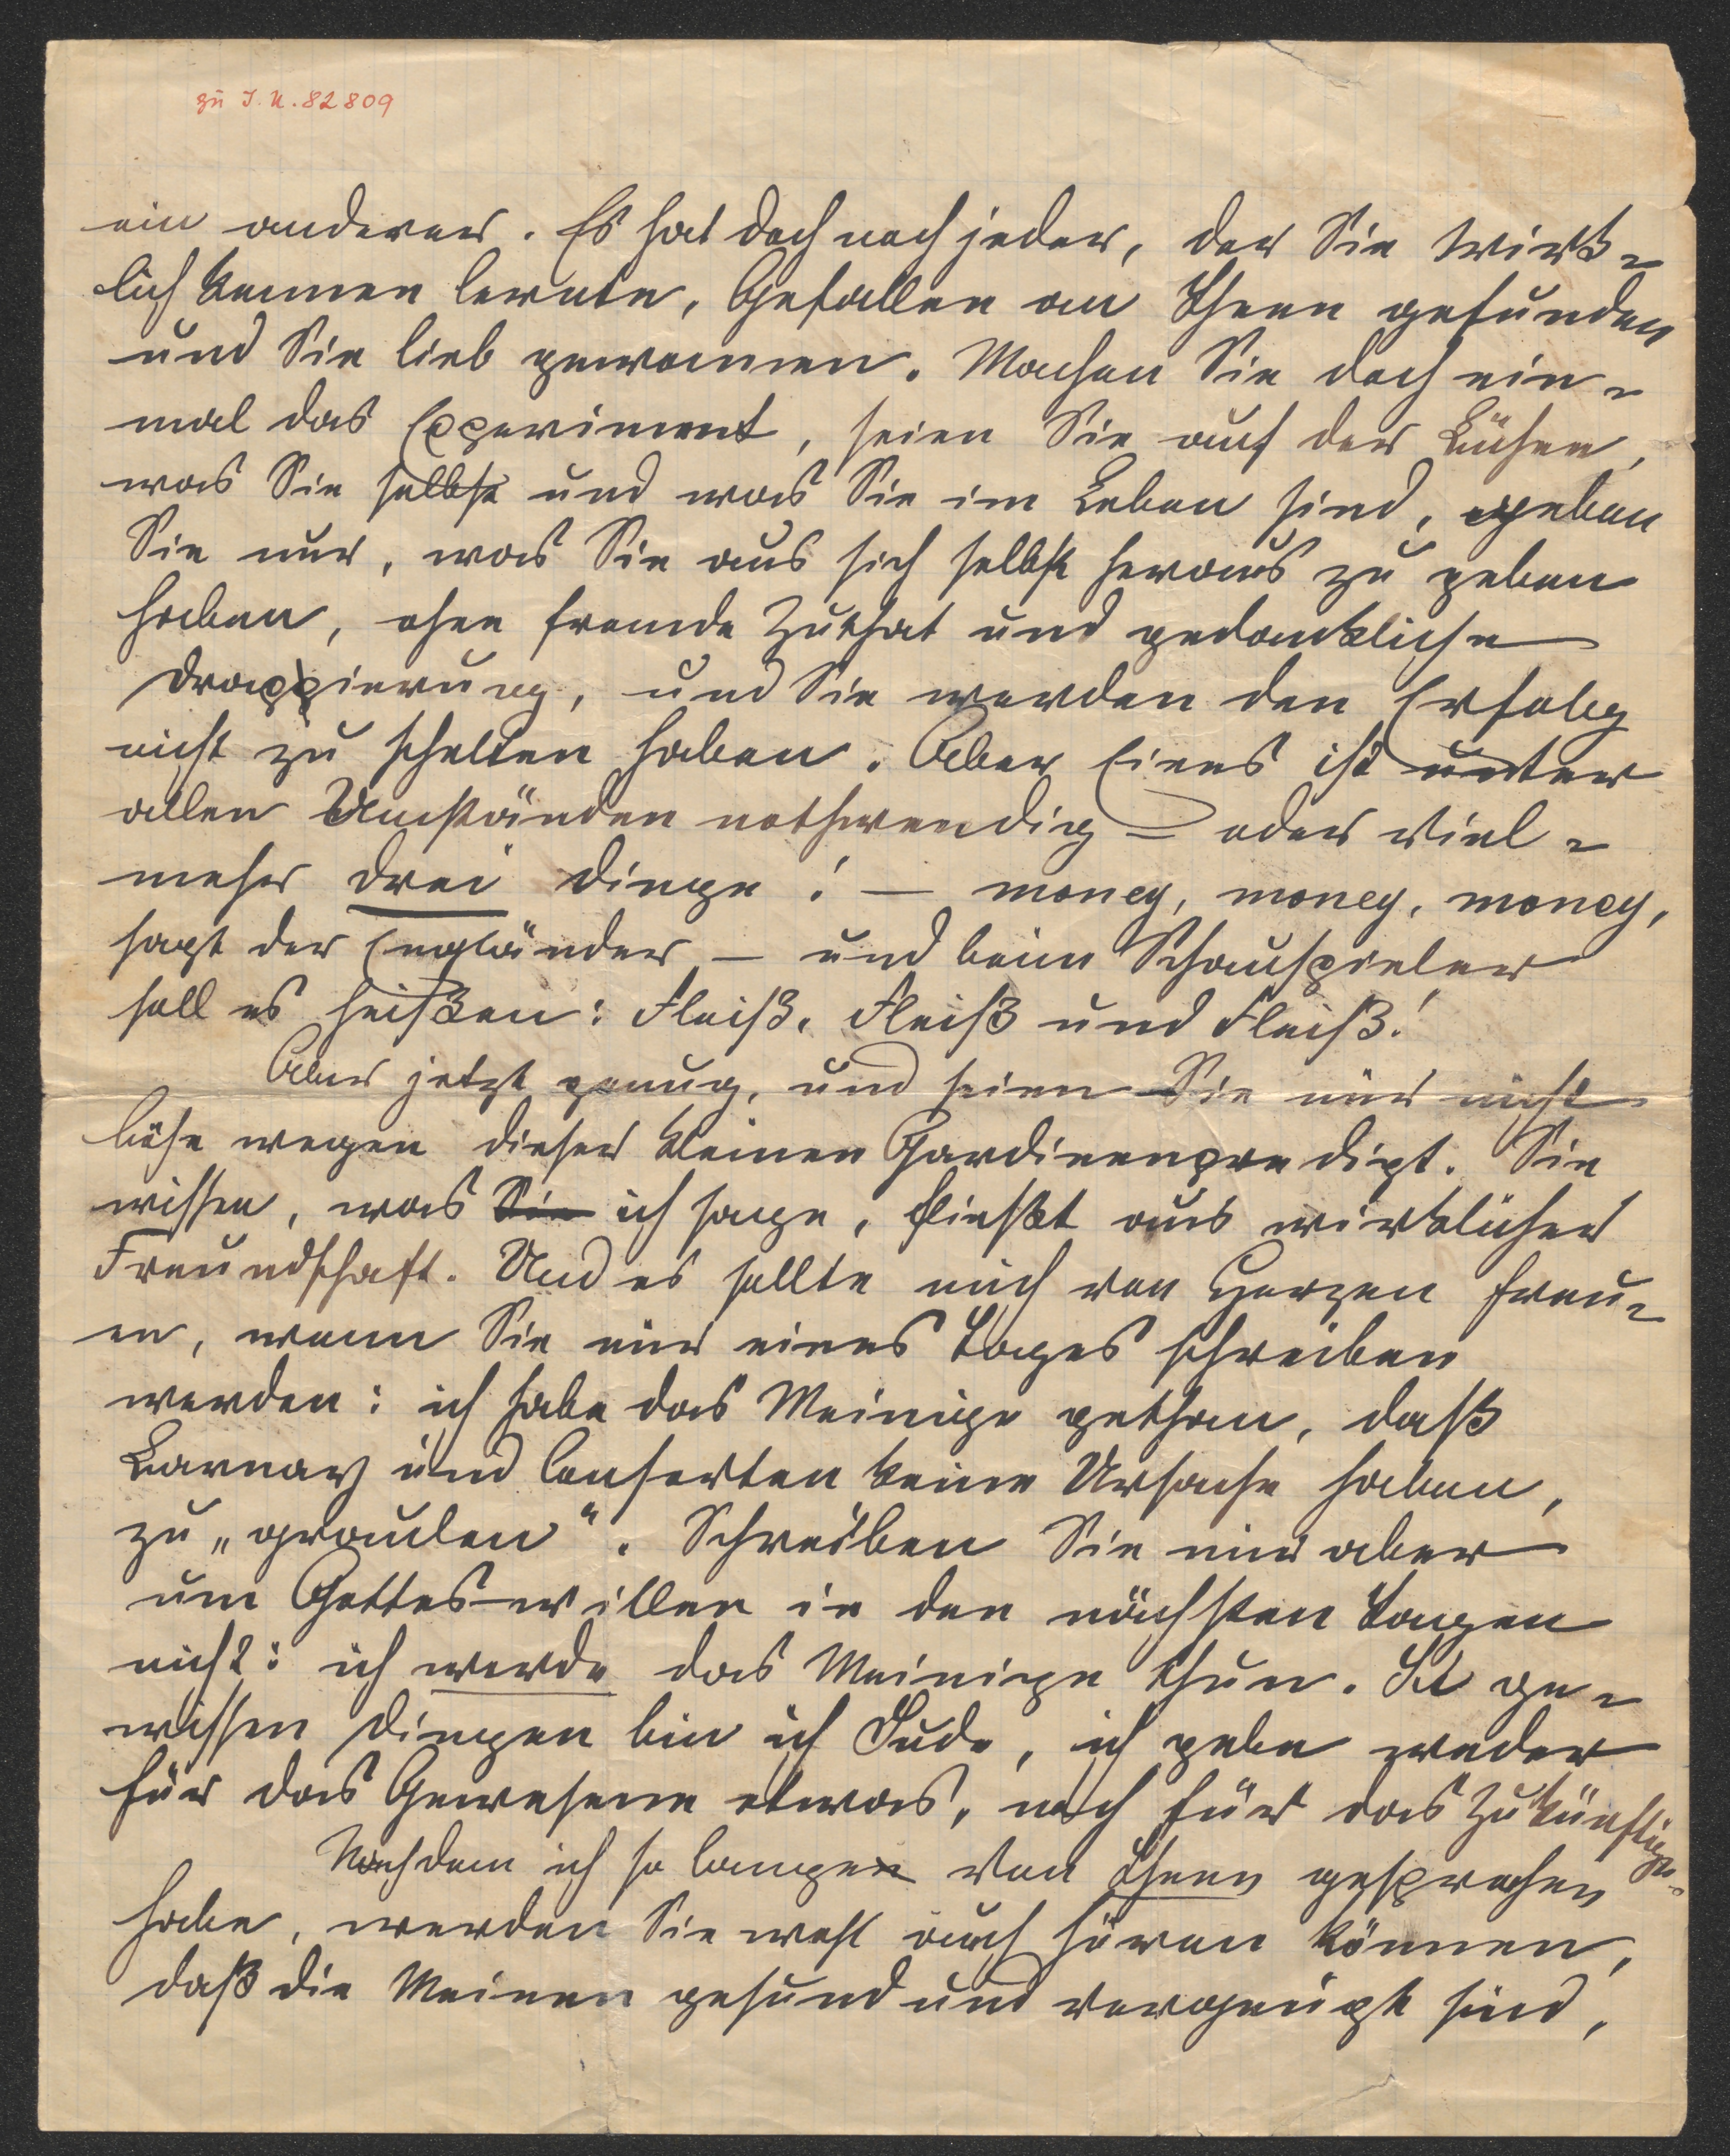 zu I. N. 82809
ein anderer. Es hat doch noch jeder, der Sie wirk-
lich kennen lernte, Gefallen an Ihnen gefunden
und Sie lieb gewonnen. Machen Sie doch ein-
mal das Experiment, seien Sie auf der Bühne,
was Sie selbst und was Sie im Leben sind, geben
Sie nur, was Sie aus sich selbst heraus zu geben
haben, ohne fremde Zuthat und gedankliche
Drappierung, und Sie werden den Erfolg
nicht zu schelten haben. Aber Eines ist unter
allen Umständen nothwendig – oder viel-
mehr drei Dinge! – money, money, money,
sagt der Engländer – und beim Schauspieler
soll es heißen: Fleiß, Fleiß und Fleiß!
Aber jetzt genug, und seien Sie mir nicht
böse wegen dieser kleinen Gardinenpredigt. Sie
wissen, was Sie ich sage, fließt aus wirklicher
Freundschaft. Und es sollte mich von Herzen freu-
en, wenn Sie mir eines Tages schreiben
werden: ich habe das Meinige gethan, daß
Barnay und Consorten keine Ursache haben,
zu „graulen“. Schreiben Sie mir aber
um Gottes willen in den nächsten Tagen
nicht: ich werde das Meinige thun. In ge-
wissen Dingen bin ich Jude, ich gebe weder
für das Gewesene etwas, noch für das Zukünftige.
Nachdem ich so lange von Ihnen gesprochen
habe, werden Sie wohl auch hören können,
daß die Meinen gesund und vergnügt sind,